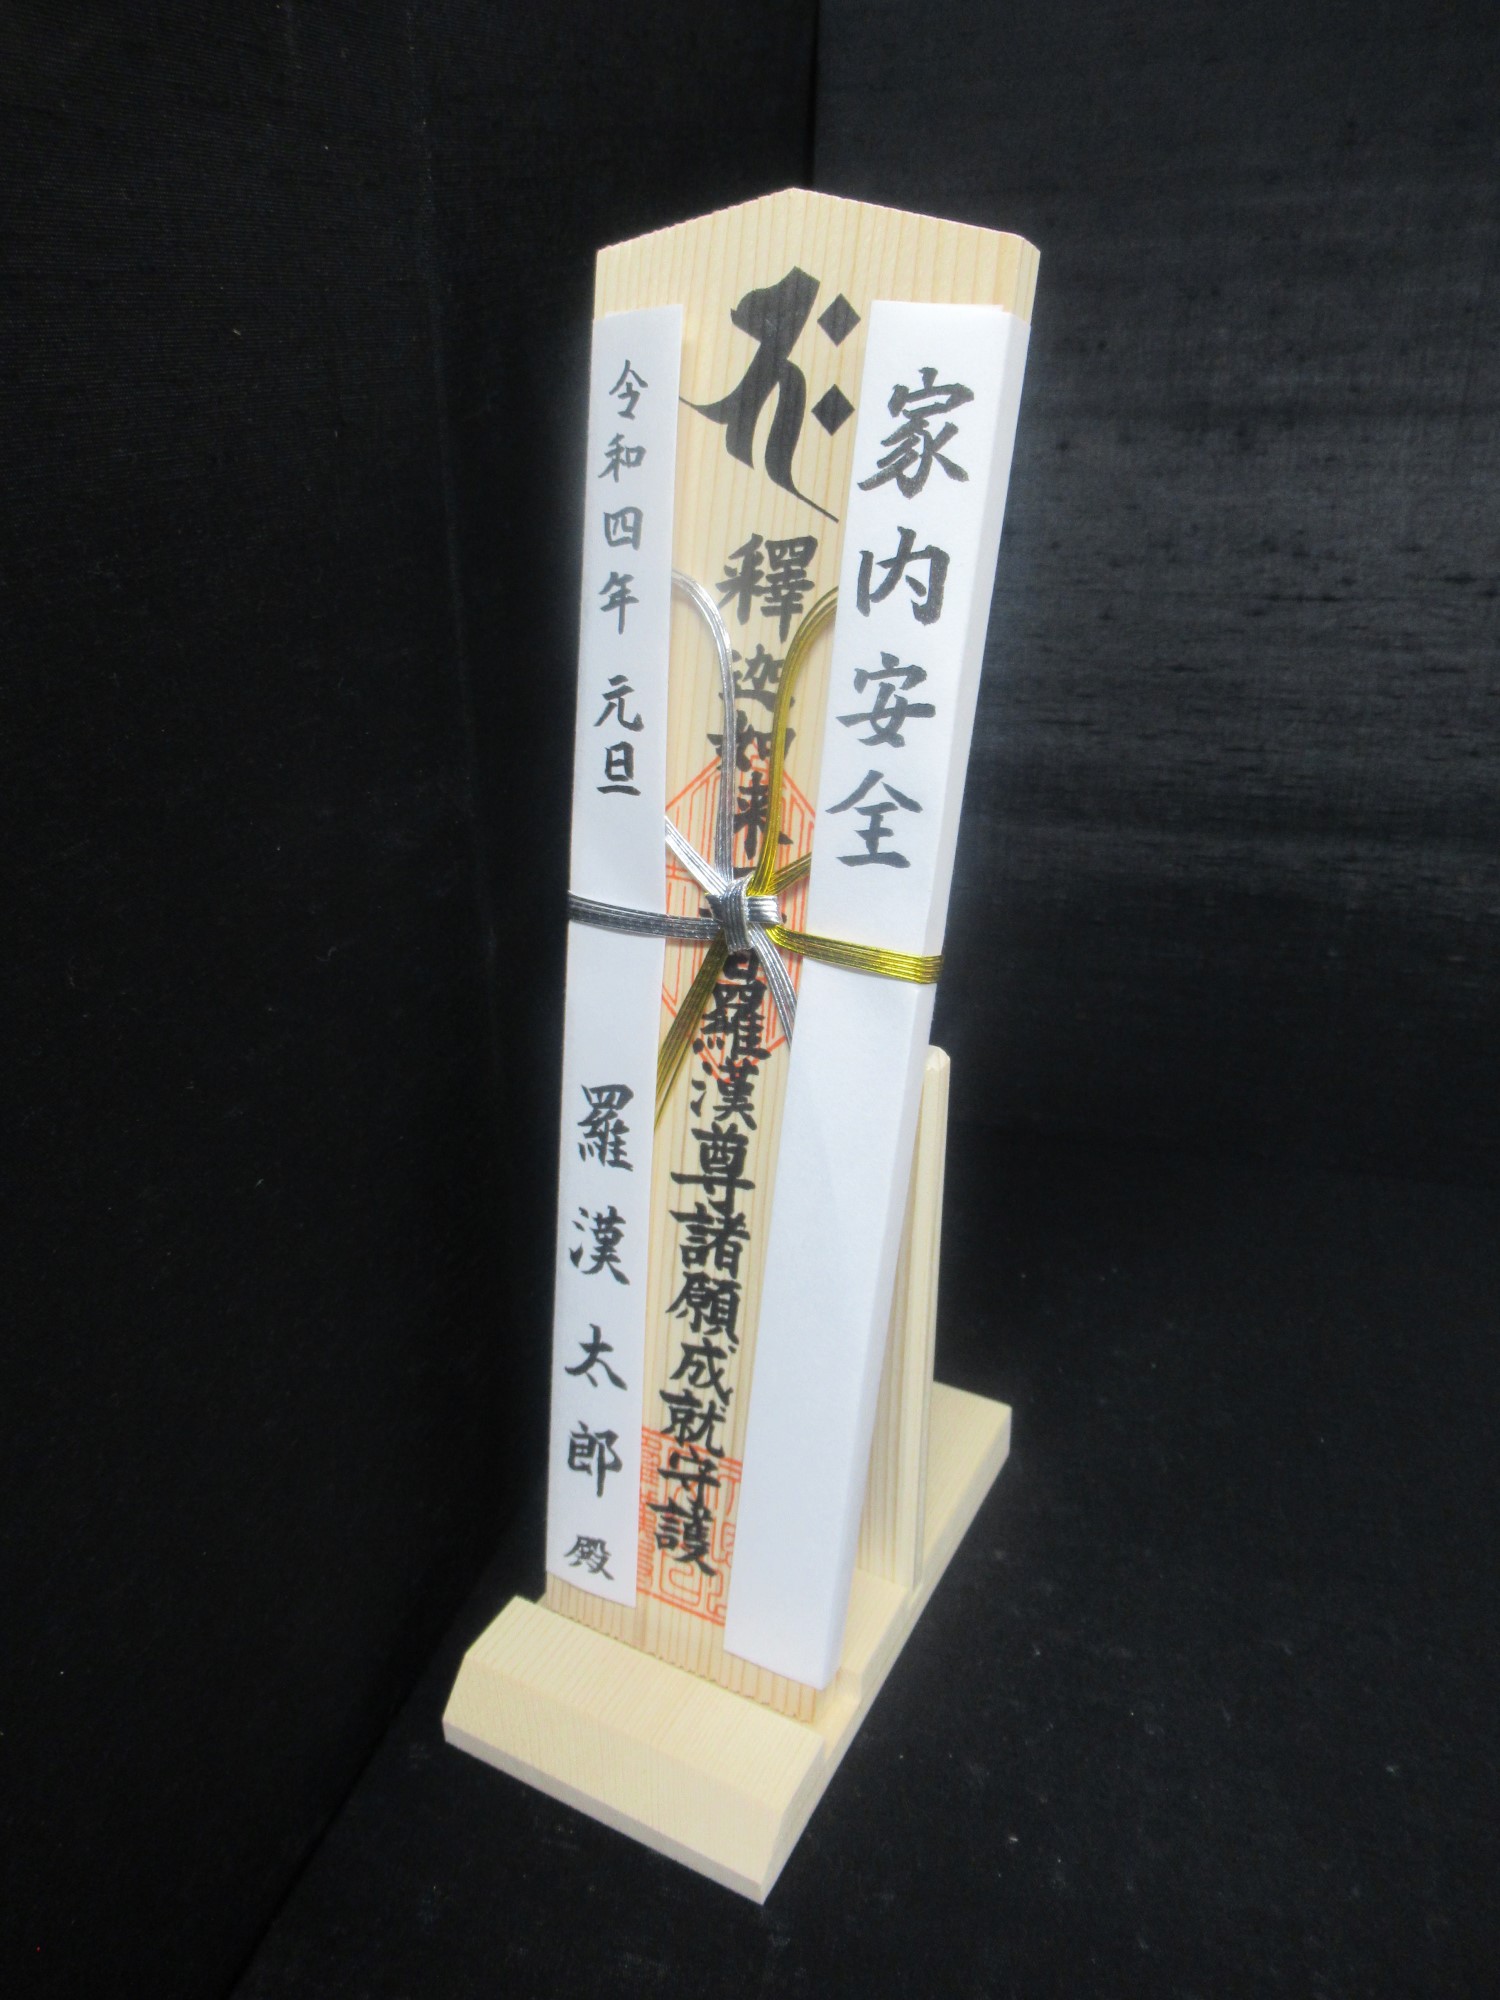 家内安全
釋迦如来
羅漢尊諸願成就守護
令和四年 元旦
羅漢太郎殿